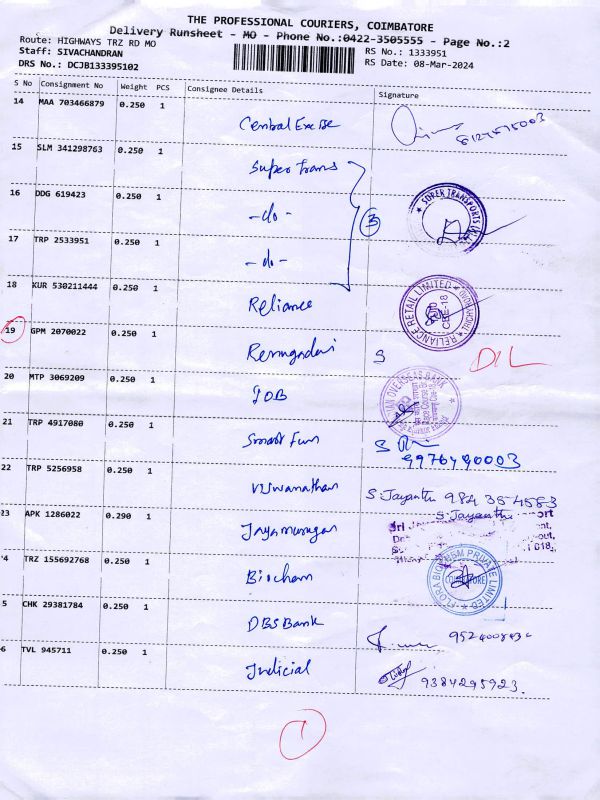 THE PROFESSIONAL COURIERS, COIMBATORE
Delivery Runsheet - MO - Phone No.:0422-3505555 - Page No.:2
Route: HIGHWAYS TRZ RD MO
Staff: SIVACHANDRAN
DRS No.: DCJB133395102
RS No.: 1333951
RS Date: 08-Mar-2024
S No Consignment No Weight PCS Consignee Details Signature
14 MAA 703466879 0.250 1
Central Excise
15 SLM 341298763 0.250 1
Super trans
16 DDG 619423 0.250 1
- do -
3
17 TRP 2533951 0.250 1
- do -
18 KUR 530211444 0.250 1
Reliance
RELIANCE RETAIL LIMITED
CBE-18
19 GPM 2070022 0.250 1
S
DIL
20 MTP 3069209 0.250 1
IOB
OVERSEAS BANK
21 TRP 4917080 0.250 1
Smart Fun
S
9976490003
22 TRP 5256958 0.250 1
Viswanathan
S. Jayanthi
23 APK 1286022 0.290 1
Jayamurugan
S. Jayanthi
4 TRZ 155692768 0.250 1
Biocham
PRIVATE LIMITED
5 CHK 29381784 0.250 1
DBS Bank
6 TVL 945711 0.250 1
Judicial
9384295923
1